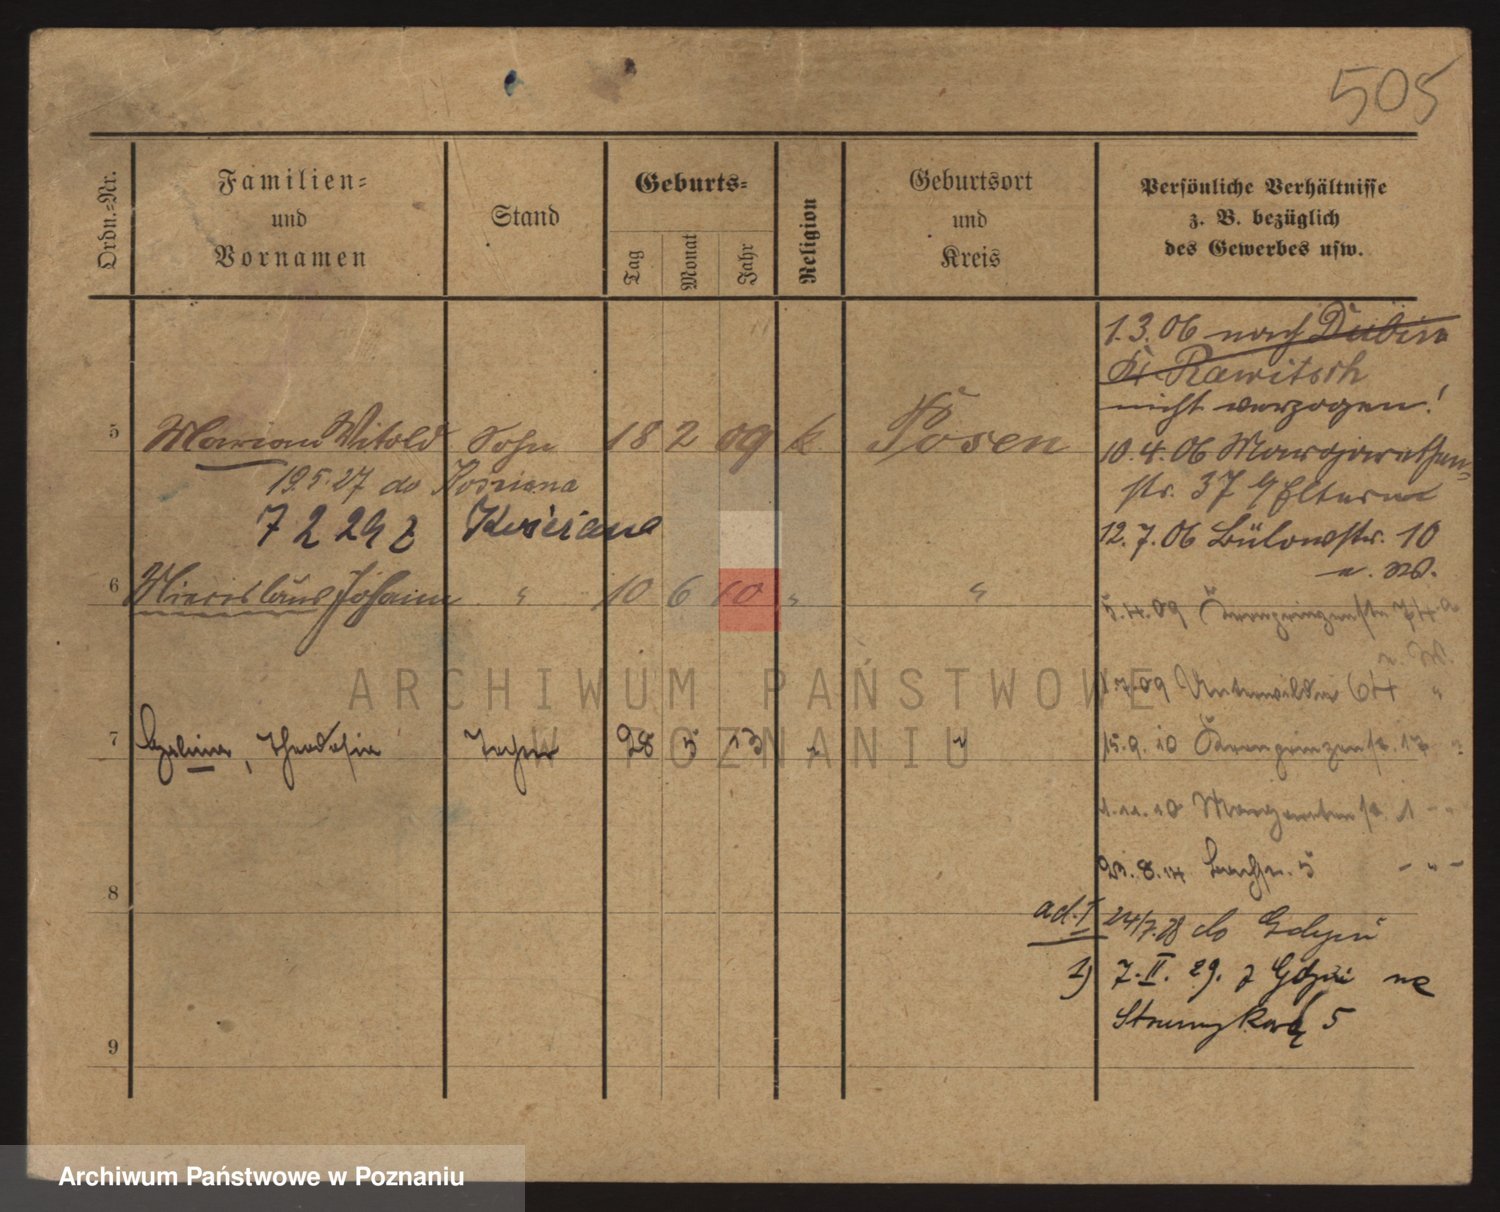 505
Ordn.-Nr.
Familien-
und
Vornamen
Stand
Geburts-
Tag
Monat
Jahr
Religion
Geburtsort
und
Kreis
Persönliche Verhältnisse
z. B. bezüglich
des Gewerbes usw.
1.3.06 nach Dubin
Kr. Rawitsch
nicht verzogen!
5 Marian Witold Sohn 18 2 09 k. Posen
19.5.27 do Kościana
7 2 29 z Kościana
10.4.06 Margarethen-
str. 37 Eltern
12.7.06 Bülowstr. 10
n. W.
6 Miecislaus Johann " 10 6 10 " "
5.4.09 Kronprinzenstr. 74a
n. W.
1.7.09 Unterwilda 64 "
7 Halina, Theodosia Tochter 28 5 13 " "
15.9.10 Kronprinzenstr. 17 "
1.11.10 Margarethenstr. 1 - " -
23.8.14 Bachstr. 5 - " -
8
ad. I 24/7.28 do Gdyni
1) 7.II.29. z Gdyni na
5
9
ARCHIWUM PAŃSTWOWE
W POZNANIU
Archiwum Państwowe w Poznaniu